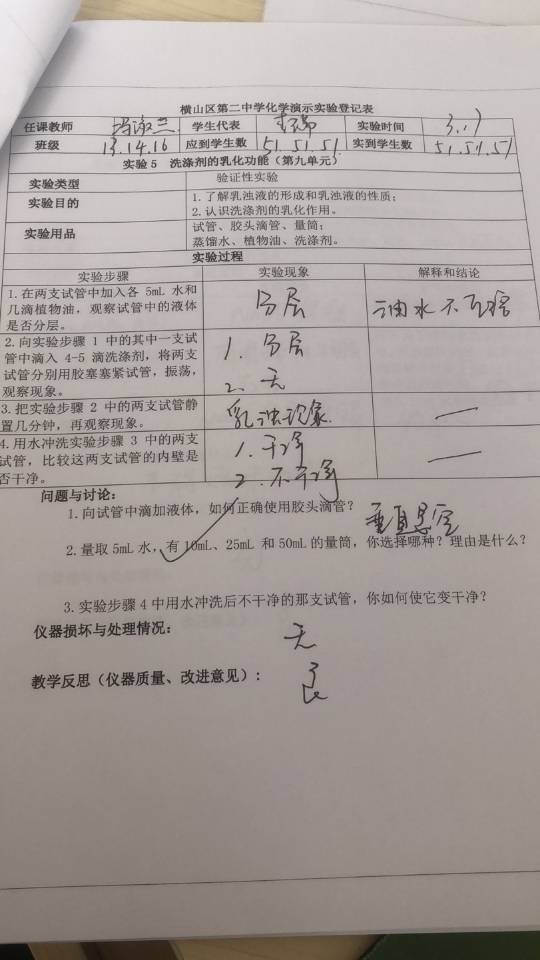 横山区第二中学化学演示实验登记表
任课教师 冯淑兰 学生代表 实验时间 3.17
班级 13.14.16 应到学生数 51.51.51 实到学生数 51.51.51
实验 5 洗涤剂的乳化功能（第九单元）
实验类型 验证性实验
实验目的 1.了解乳浊液的形成和乳浊液的性质；
2.认识洗涤剂的乳化作用。
实验用品 试管、胶头滴管、量筒；
蒸馏水、植物油、洗涤剂。
实验过程
实验步骤 实验现象 解释和结论
1.在两支试管中加入各 5mL 水和
几滴植物油，观察试管中的液体
是否分层。
分层 油水不互溶
2.向实验步骤 1 中的其中一支试
管中滴入 4-5 滴洗涤剂，将两支
试管分别用胶塞塞紧试管，振荡，
观察现象。
1.分层
2.无
3.把实验步骤 2 中的两支试管静
置几分钟，再观察现象。
乳浊现象 —
4.用水冲洗实验步骤 3 中的两支
试管，比较这两支试管的内壁是
否干净。
1.干净 —
2.不干净
问题与讨论：
1.向试管中滴加液体，如何正确使用胶头滴管？ 垂直悬空
2.量取 5mL 水，有 10mL、25mL 和 50mL 的量筒，你选择哪种？理由是什么？
3.实验步骤 4 中用水冲洗后不干净的那支试管，你如何使它变干净？
仪器损坏与处理情况： 无
教学反思（仪器质量、改进意见）： 良